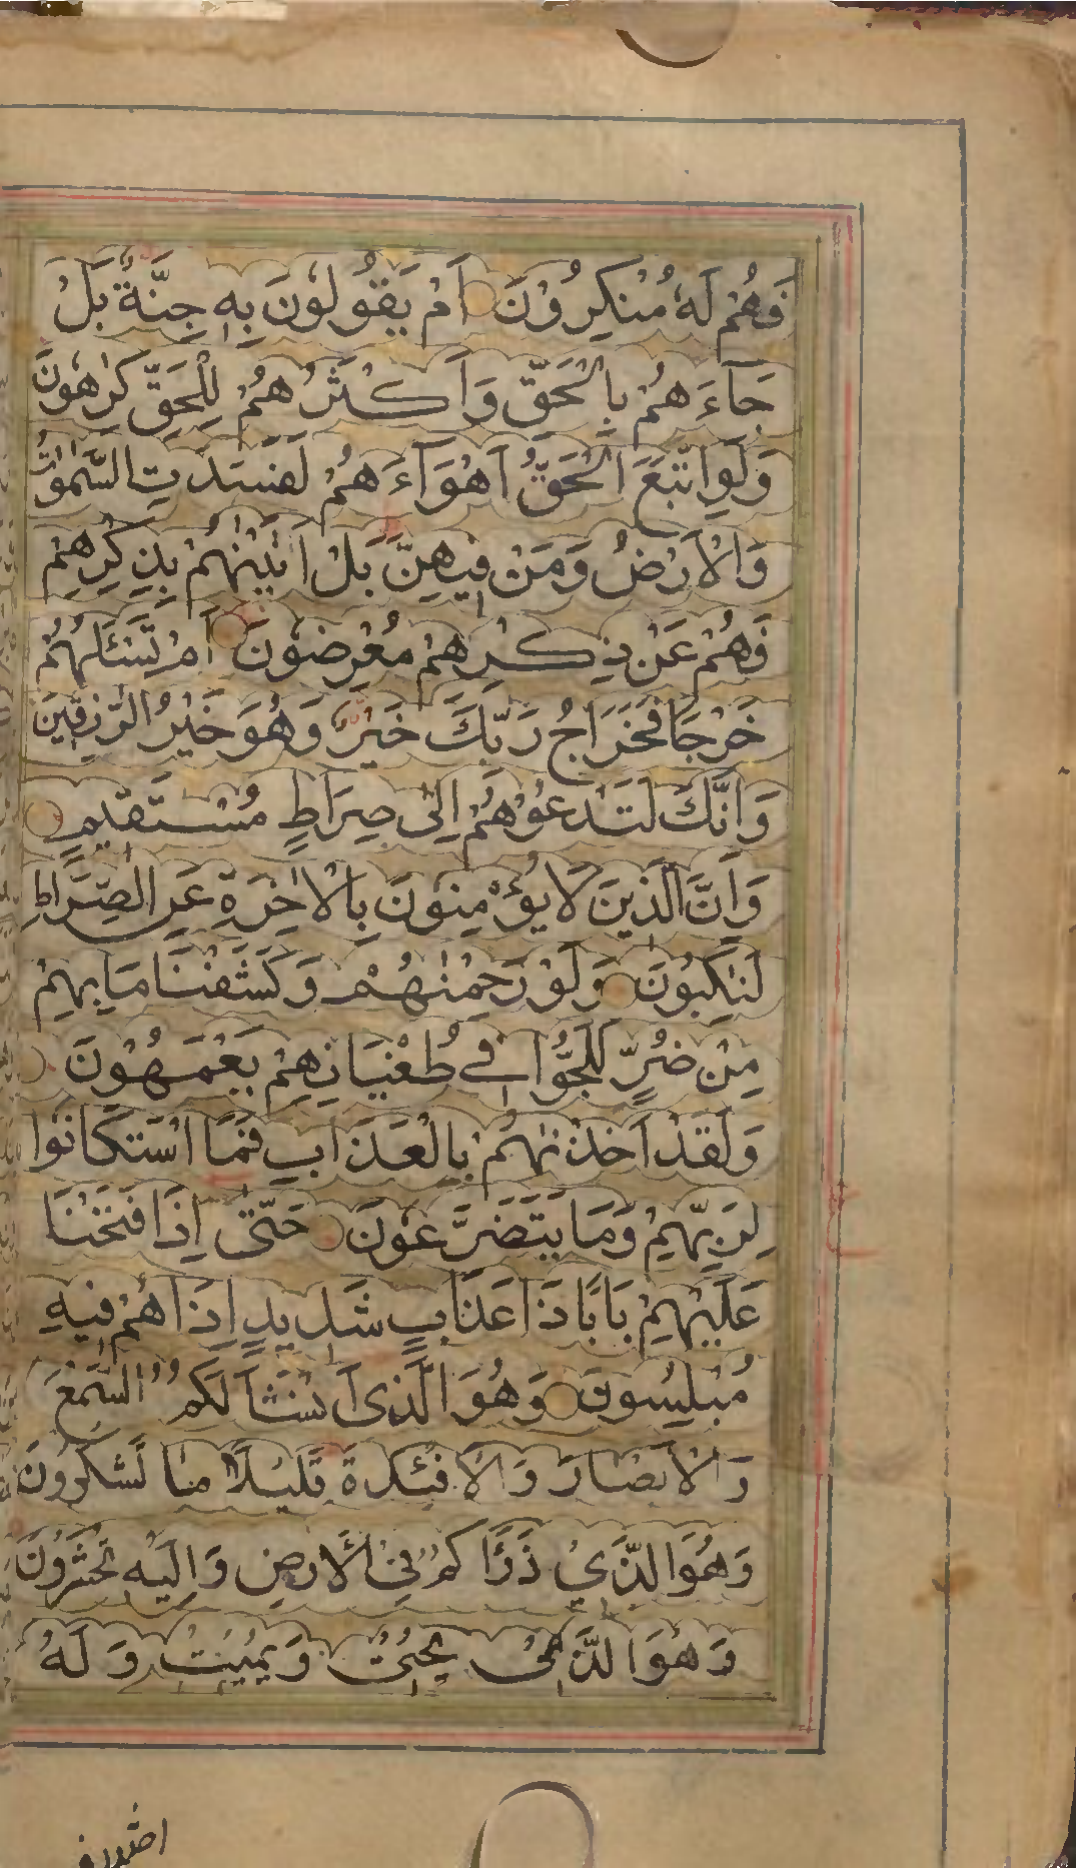 فَهُمْ لَهٗ مُنْكِرُوْنَ اَمْ يَقُوْلُوْنَ بِهٖ جِنَّةٌ بَلْ
جَآءَهُمْ بِالْحَقِّ وَاَكْثَرُهُمْ لِلْحَقِّ كٰرِهُوْنَ
وَلَوِاتَّبَعَ الْحَقُّ اَهْوَآءَهُمْ لَفَسَدَتِ السَّمٰوٰتُ
وَالْاَرْضُ وَمَنْ فِيْهِنَّ بَلْ اَتَيْنٰهُمْ بِذِكْرِهِمْ
فَهُمْ عَنْ ذِكْرِهِمْ مُعْرِضُوْنَ اَمْ تَسْـَٔلُهُمْ
خَرْجًا فَخَرَاجُ رَبِّكَ خَيْرٌ وَهُوَ خَيْرُ الرّٰزِقِيْنَ
وَاِنَّكَ لَتَدْعُوْهُمْ اِلٰى صِرَاطٍ مُسْتَقِيْمٍ
وَاِنَّ الَّذِيْنَ لَا يُؤْمِنُوْنَ بِالْاٰخِرَةِ عَنِ الصِّرَاطِ
لَنٰكِبُوْنَ وَلَوْ رَحِمْنٰهُمْ وَكَشَفْنَا مَا بِهِمْ
مِنْ ضُرٍّ لَلَجُّوْا فِيْ طُغْيَانِهِمْ يَعْمَهُوْنَ
وَلَقَدْ اَخَذْنٰهُمْ بِالْعَذَابِ فَمَا اسْتَكَانُوْا
لِرَبِّهِمْ وَمَا يَتَضَرَّعُوْنَ حَتّٰى اِذَا فَتَحْنَا
عَلَيْهِمْ بَابًا ذَا عَذَابٍ شَدِيْدٍ اِذَا هُمْ فِيْهِ
مُبْلِسُوْنَ وَهُوَ الَّذِىْ اَنْشَاَ لَكُمُ السَّمْعَ
وَالْاَبْصَارَ وَالْاَفْئِدَةَ قَلِيْلًا مَا تَشْكُرُوْنَ
وَهُوَ الَّذِيْ ذَرَاَكُمْ فِى الْاَرْضِ وَاِلَيْهِ تُحْشَرُوْنَ
وَهُوَ الَّذِىْ يُحْيٖ وَيُمِيْتُ وَلَهُ